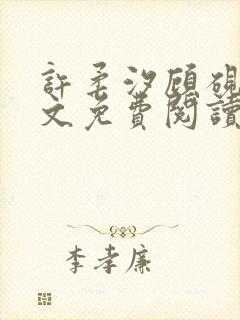 許柔汐顧硯
文免費閱讀
李孝廉